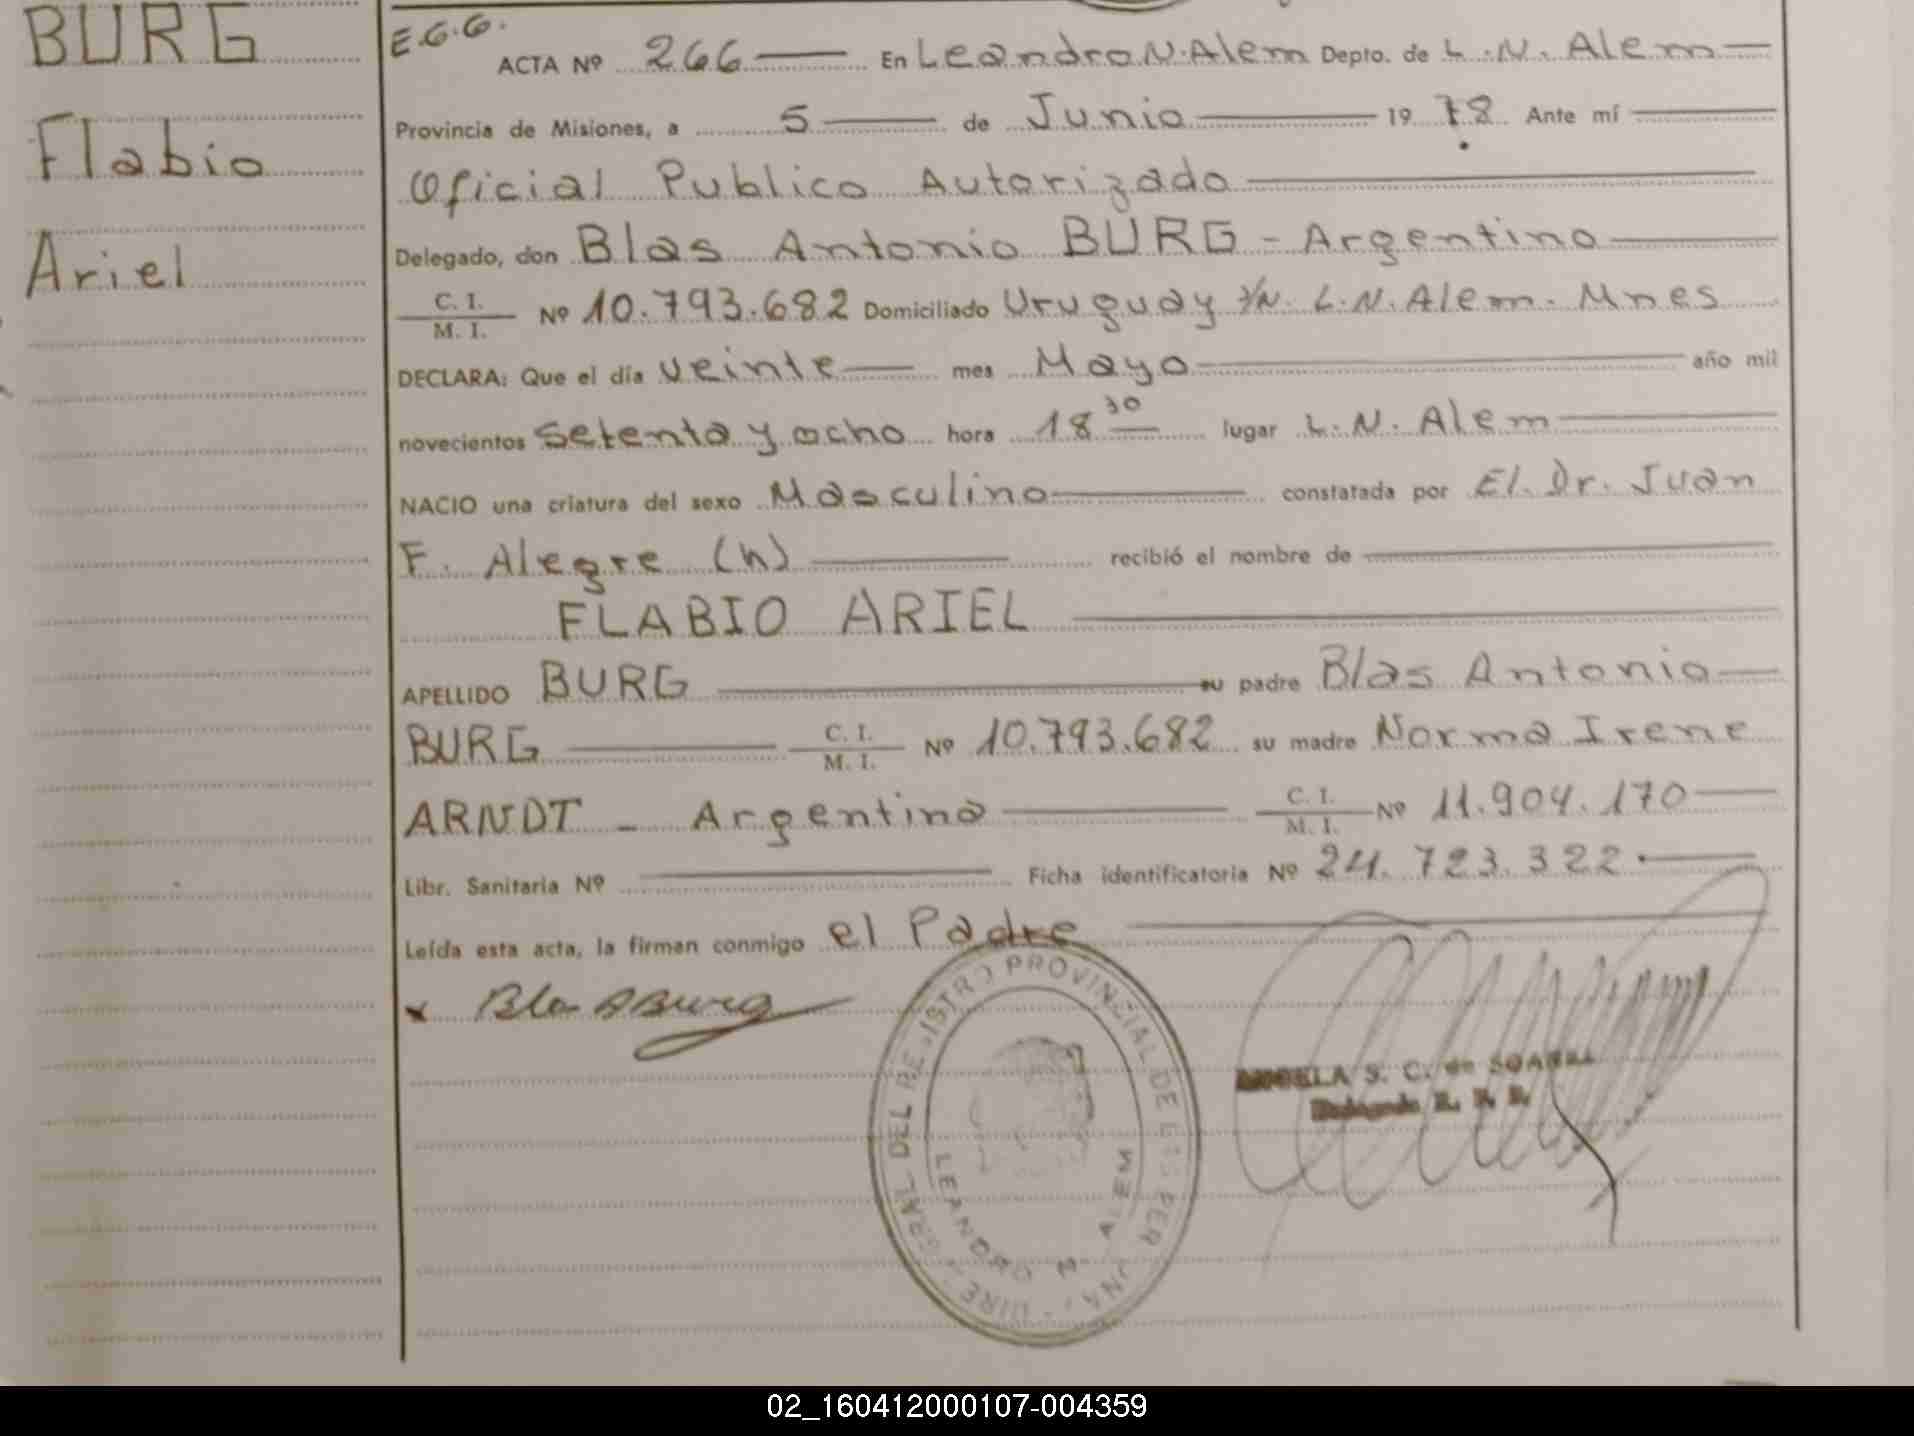 BURG
Flabio
Ariel
E.G.G.
ACTA Nº 266 En Leandro N. Alem Depto. de L.N. Alem
Provincia de Misiones, a 5 de Junio 19 78 Ante mí
Oficial Publico Autorizado
Delegado, don Blas Antonio BURG - Argentino
C. I. / M. I. Nº 10.793.682 Domiciliado Uruguay s/N. L.N. Alem. Mnes
DECLARA: Que el día veinte mes Mayo año mil
novecientos setenta y ocho hora 18 30 lugar L.N. Alem
NACIO una criatura del sexo Masculino constatada por El Dr. Juan
F. Alegre (h) recibió el nombre de
FLABIO ARIEL
APELLIDO BURG su padre Blas Antonio
BURG C. I. / M. I. Nº 10.793.682 su madre Norma Irene
ARNDT - Argentina C. I. / M. I. Nº 11.904.170
Libr. Sanitaria Nº Ficha identificatoria Nº 24.723.322.
Leída esta acta, la firman conmigo el Padre
x Blas A Burg
DEL REGISTRO PROVINCIAL DE
LEANDRO N. ALEM
S. C. de
02_160412000107-004359